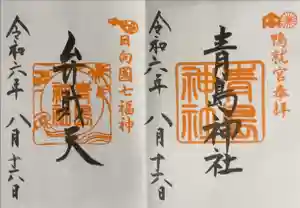 鴨就宮奉拝
青島神社
青島神社
令和六年 八月十六日
日向國七福神
弁財天
令和六年 八月十六日